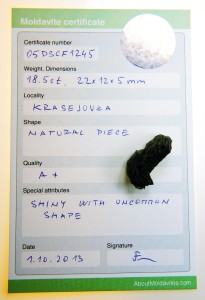 Moldavite certificate
Certificate number
05DSCF1245
Weight, Dimensions
18.5ct, 22x12x5mm
Locality
KRASEJOVKA
Shape
NATURAL PIECE
Quality
A+
Special attributes
SHINY WITH UNCOMMON
SHAPE
Date
Signature
1.10.2013
AboutMoldavites.com